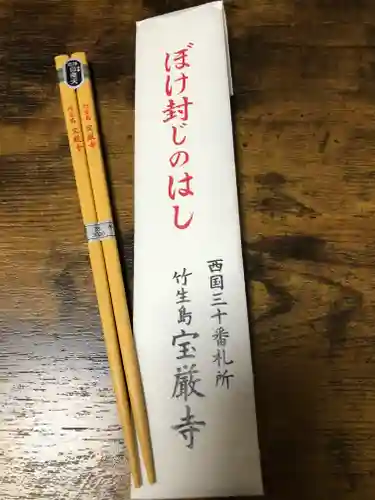 ぼけ封じのはし
西国三十番札所
竹生島 宝厳寺
竹生島 宝厳寺
竹生島 宝厳寺